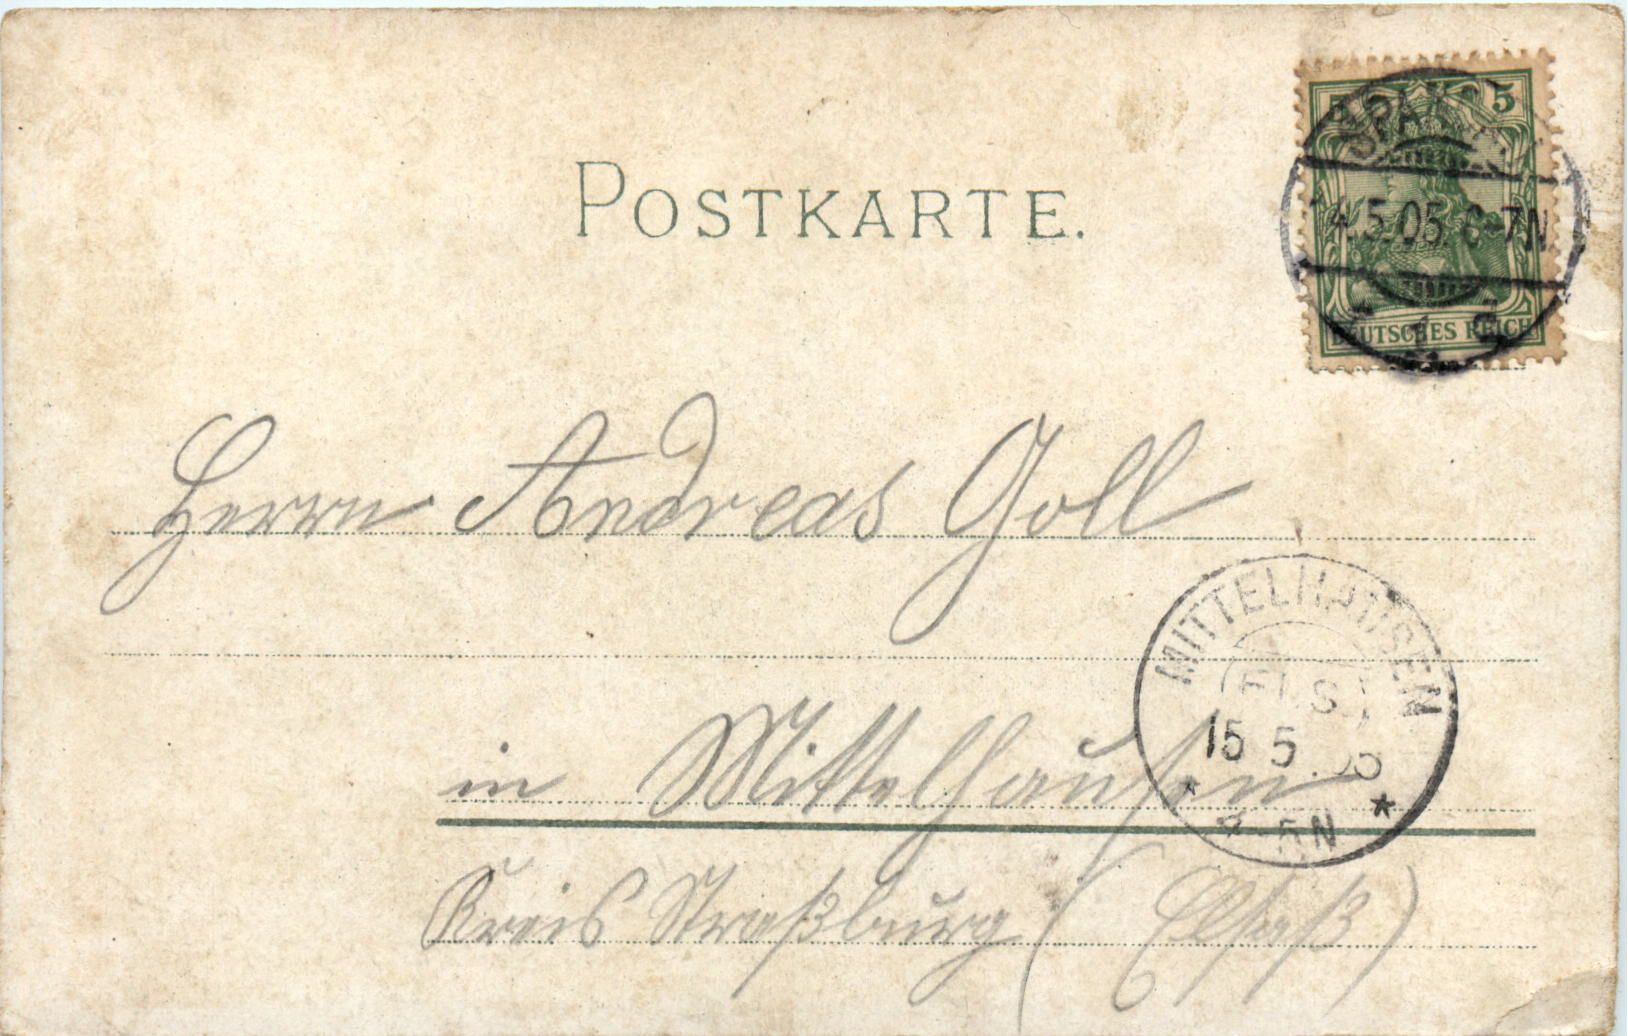 POSTKARTE.
5
14.5.05. 6-7N
1
DEUTSCHES REICH
Herrn Andreas Goll
MITTELHAUSEN
(ELS.)
15 5 05
* *
4-5N
in Mittelhausen
Kreis Straßburg (Elsaß)